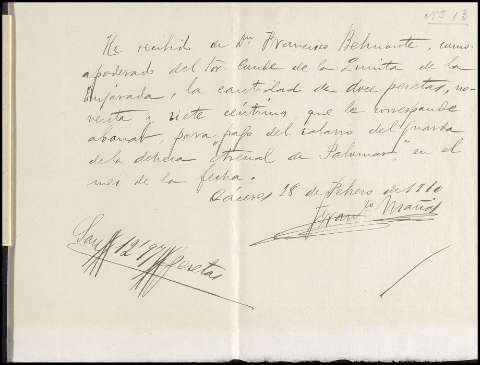 Nº 13
He recibido de Dn Francisco Belmonte, como
apoderado del Sor. Conde de la Quinta de la
Enjarada, la cantidad de doce pesetas, no-
venta y siete céntimos, que le corresponde
abonar, para pago del salario del guarda
de la dehesa "Arenal de Palomar" en el
mes de la fecha.
Cáceres 28 de Febrero de 1910
Son 12'97 pesetas